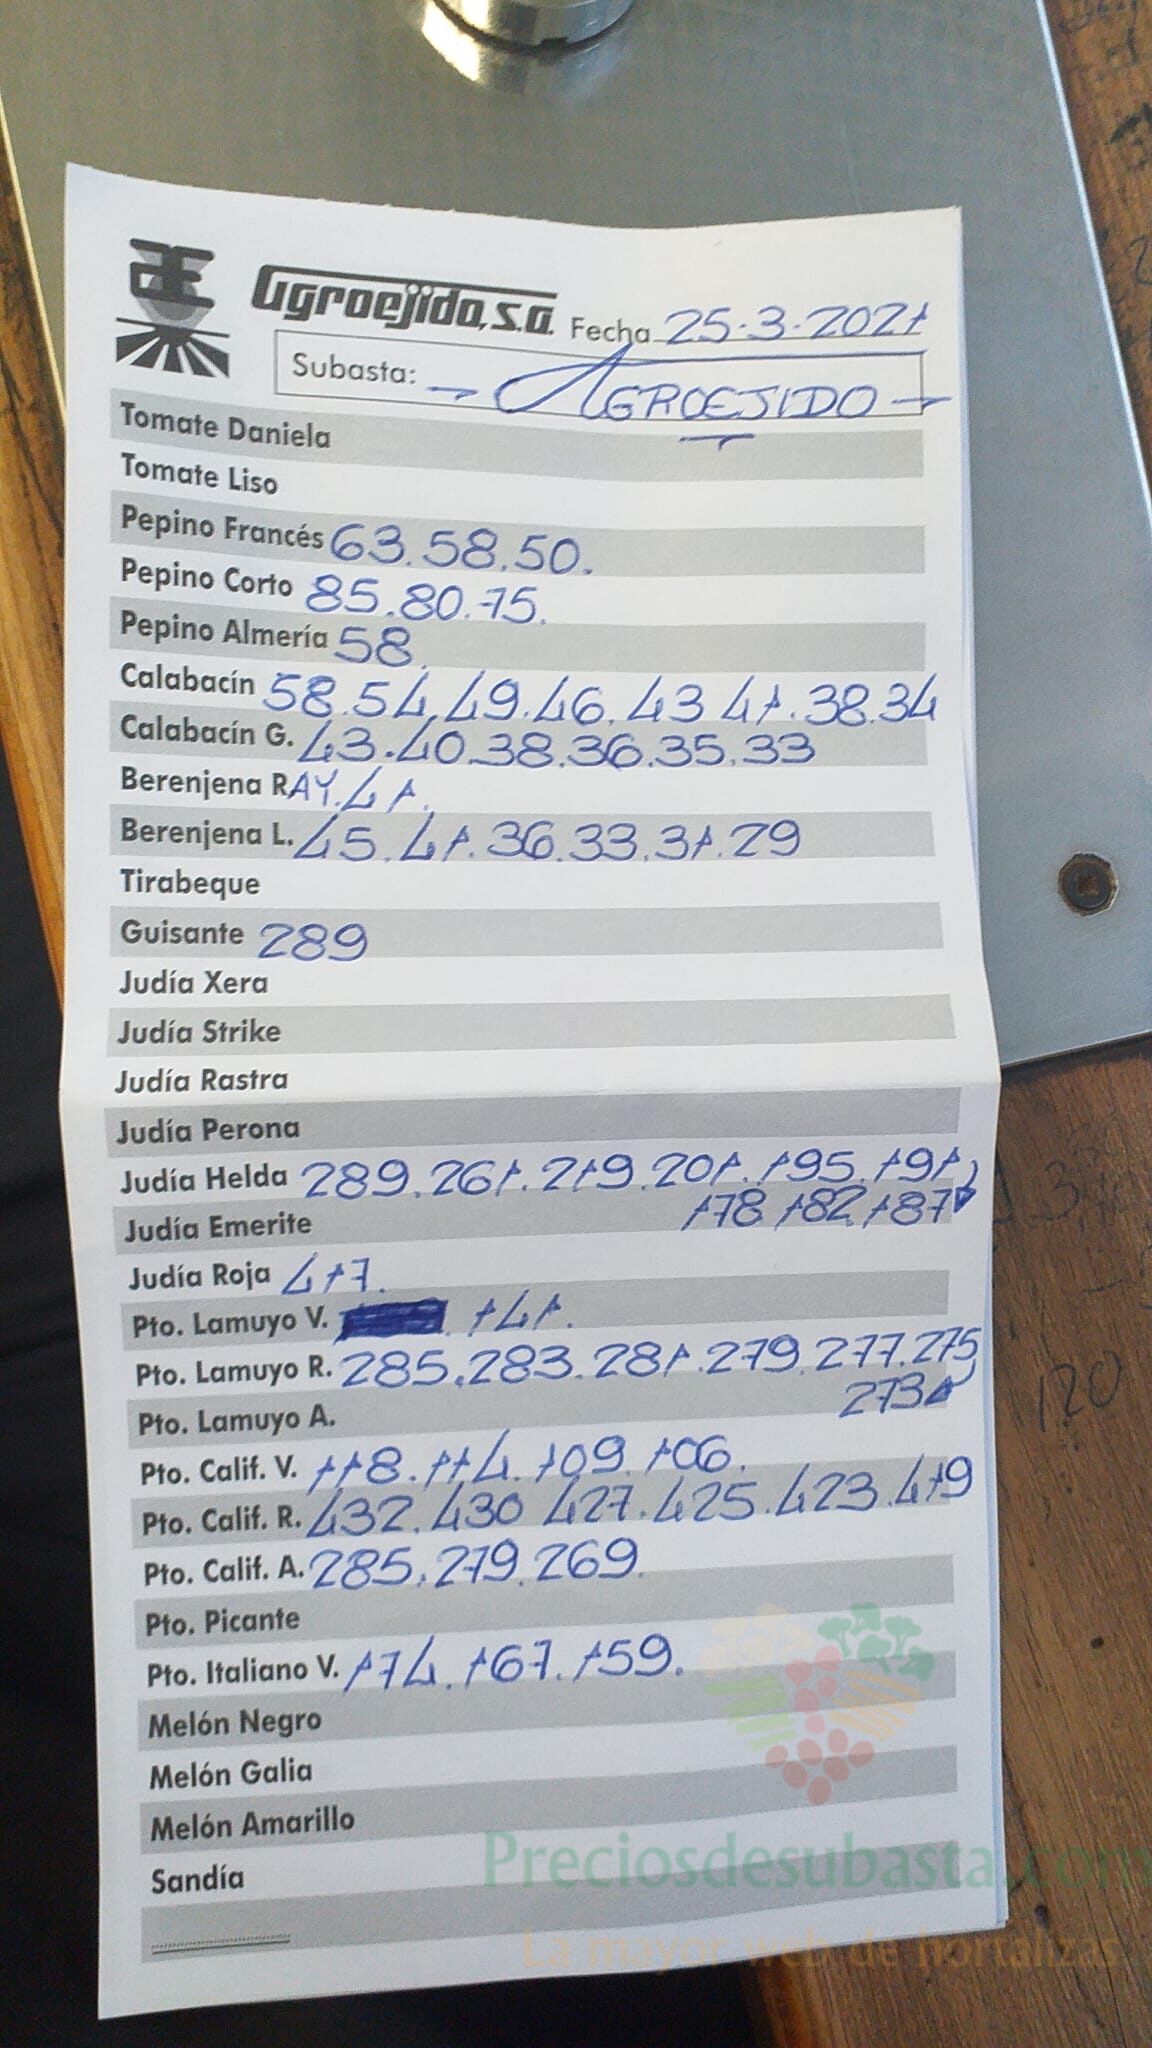 Agroejido, s.a. Fecha 25.3.2021
Subasta: → AGROEJIDO →
Tomate Daniela
Tomate Liso
Pepino Francés 63.58.50.
Pepino Corto 85.80.75.
Pepino Almería 58.
Calabacín 58.54.49.46.43 41.38.34
Calabacín G. 43.40.38.36.35.33
Berenjena RAY.41.
Berenjena L. 45.41.36.33.31.29
Tirabeque
Guisante 289
Judía Xera
Judía Strike
Judía Rastra
Judía Perona
Judía Helda 289.261.219.201.195.191
178.182.187
Judía Emerite
Judía Roja 417.
Pto. Lamuyo V. 141.
Pto. Lamuyo R. 285.283.281.279.277.275
273
Pto. Lamuyo A.
Pto. Calif. V. 118.114.109.106.
Pto. Calif. R. 432.430 427.425.423.419
Pto. Calif. A. 285.279.269.
Pto. Picante
Pto. Italiano V. 174.167.159.
Melón Negro
Melón Galia
Melón Amarillo
Sandía
Preciosdesubasta.com
La mayor web de hortalizas
120